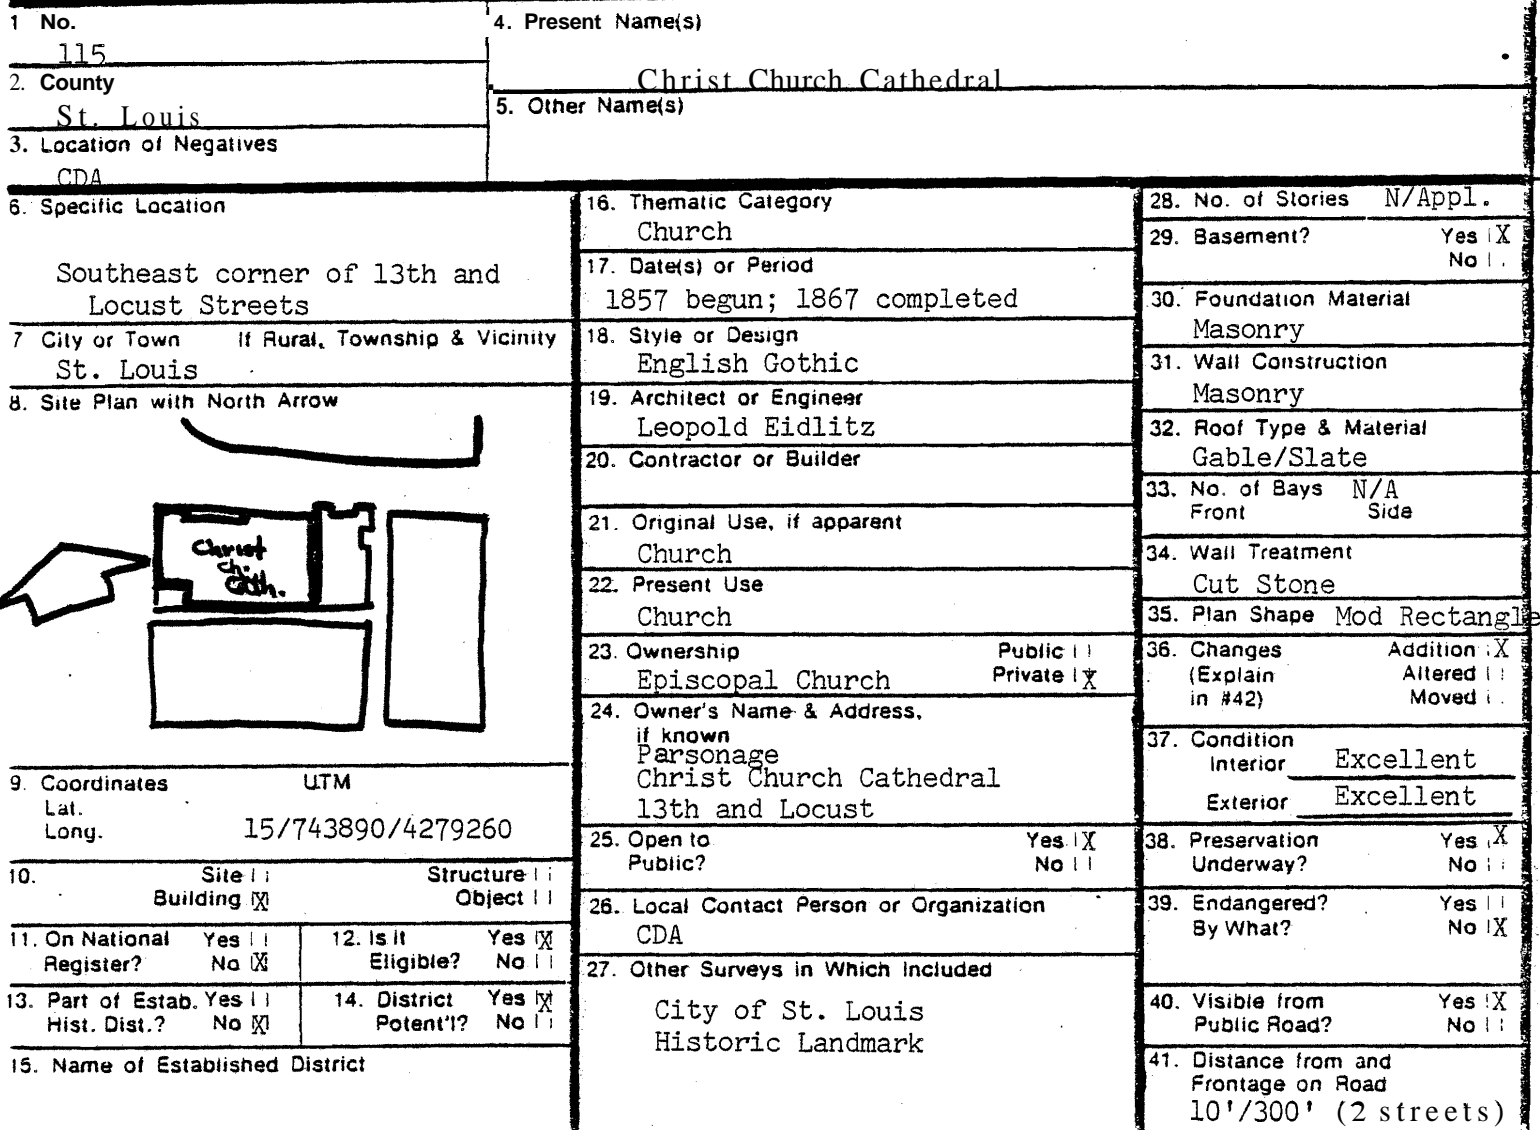 1 No.
115
2. County
St. Louis
3. Location of Negatives
CDA
4. Present Name(s)
Christ Church Cathedral
5. Other Name(s)
6. Specific Location
Southeast corner of 13th and
Locust Streets
7 City or Town If Rural, Township & Vicinity
St. Louis
8. Site Plan with North Arrow
Christ
Ch.
Cath.
9. Coordinates UTM
Lat.
Long. 15/743890/4279260
10. Site Structure
Building X Object
11. On National Yes
Register? No X
12. Is It Yes X
Eligible? No
13. Part of Estab. Yes
Hist. Dist.? No X
14. District Yes X
Potent'l? No
15. Name of Established District
16. Thematic Category
Church
17. Date(s) or Period
1857 begun; 1867 completed
18. Style or Design
English Gothic
19. Architect or Engineer
Leopold Eidlitz
20. Contractor or Builder
21. Original Use, if apparent
Church
22. Present Use
Church
23. Ownership Public
Episcopal Church Private X
24. Owner's Name & Address,
if known
Parsonage
Christ Church Cathedral
13th and Locust
25. Open to Yes X
Public? No
26. Local Contact Person or Organization
CDA
27. Other Surveys in Which Included
City of St. Louis
Historic Landmark
28. No. of Stories N/Appl.
29. Basement? Yes X
No
30. Foundation Material
Masonry
31. Wall Construction
Masonry
32. Roof Type & Material
Gable/Slate
33. No. of Bays N/A
Front Side
34. Wall Treatment
Cut Stone
35. Plan Shape Mod Rectangle
36. Changes Addition X
(Explain Altered
in #42) Moved
37. Condition
Interior Excellent
Exterior Excellent
38. Preservation Yes X
Underway? No
39. Endangered? Yes
By What? No X
40. Visible from Yes X
Public Road? No
41. Distance from and
Frontage on Road
10'/300' (2 streets)